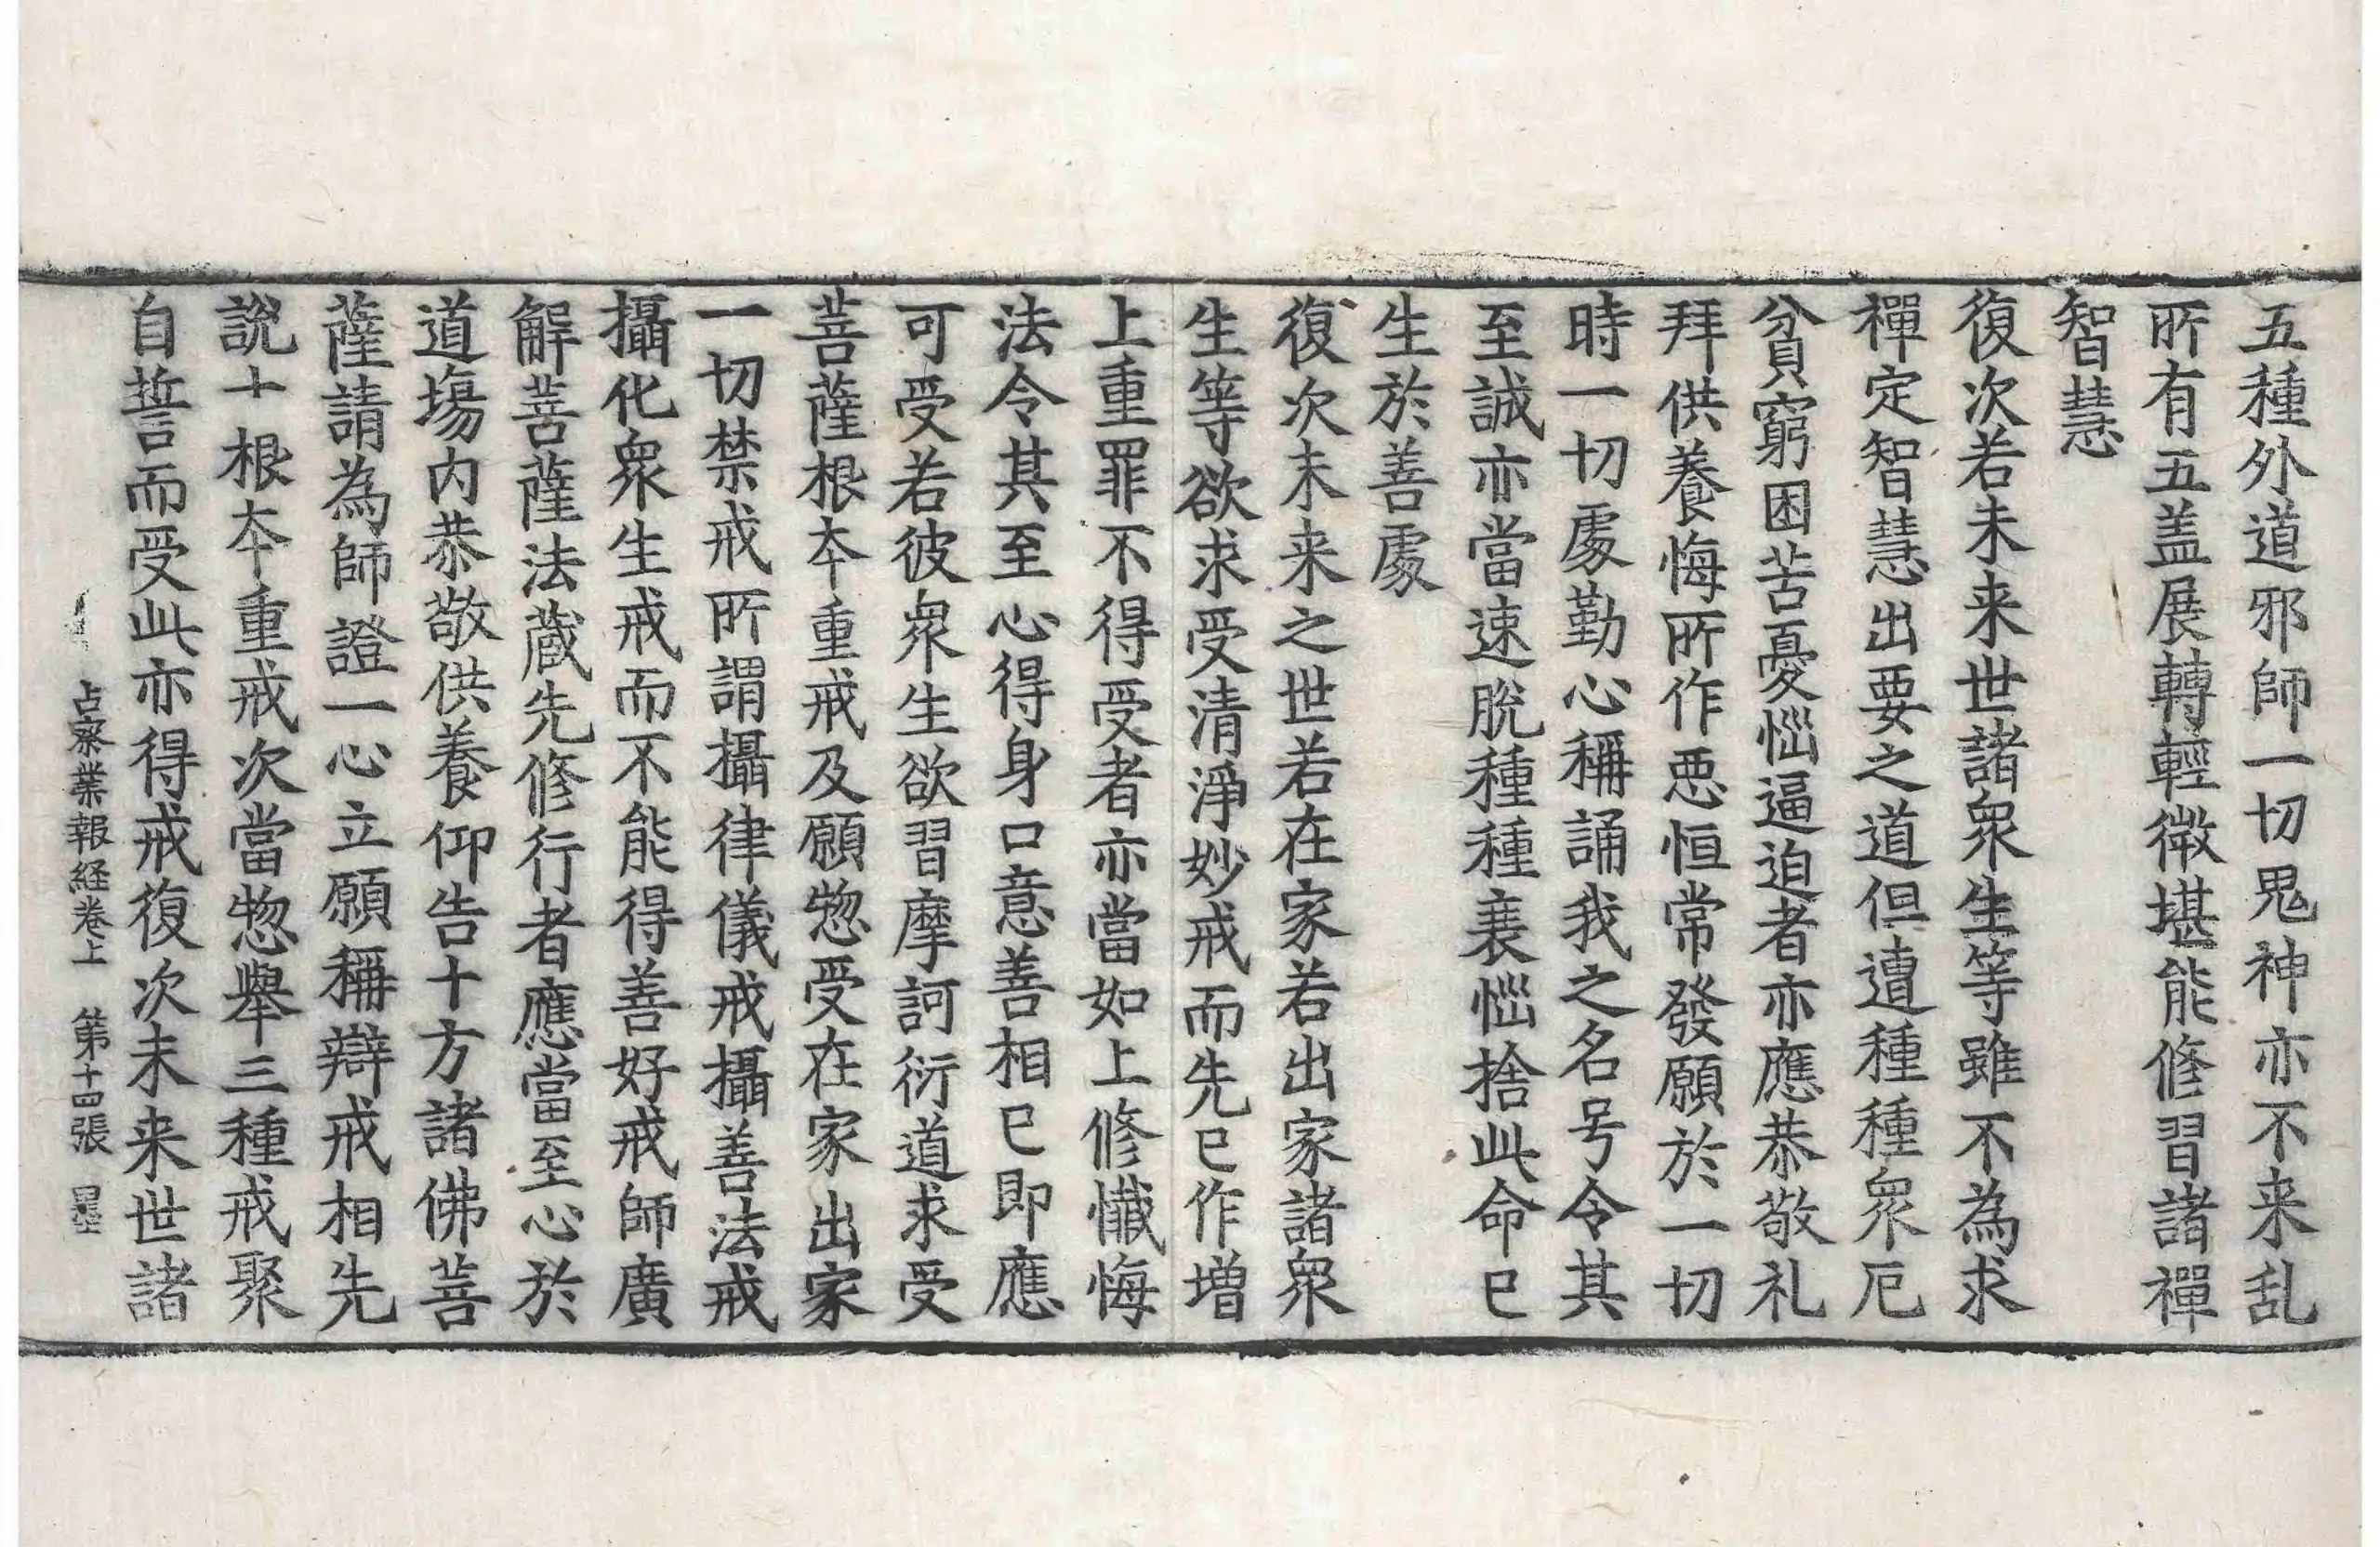 五種外道邪師一切鬼神亦不来乱
所有五盖展轉輕微堪能修習諸禪
智慧
復次若未来世諸衆生等雖不為求
禪定智慧出要之道但遭種種衆厄
貧窮困苦憂惱逼迫者亦應恭敬礼
拜供養悔所作悪恒常發願於一切
時一切處勤心稱誦我之名号令其
至誠亦當速脫種種衰惱捨此命已
生於善處
復次未来之世若在家若出家諸衆
生等欲求受清淨妙戒而先已作增
上重罪不得受者亦當如上修懺悔
法令其至心得身口意善相已即應
可受若彼衆生欲習摩訶衍道求受
菩薩根本重戒及願惣受在家出家
一切禁戒所謂攝律儀戒攝善法戒
攝化衆生戒而不能得善好戒師廣
解菩薩法蔵先修行者應當至心於
道場内恭敬供養仰告十方諸佛菩
薩請為師證一心立願稱辯戒相先
說十根本重戒次當惣舉三種戒聚
自誓而受此亦得戒復次未来世諸
占察業報経卷上　第十四張　墨